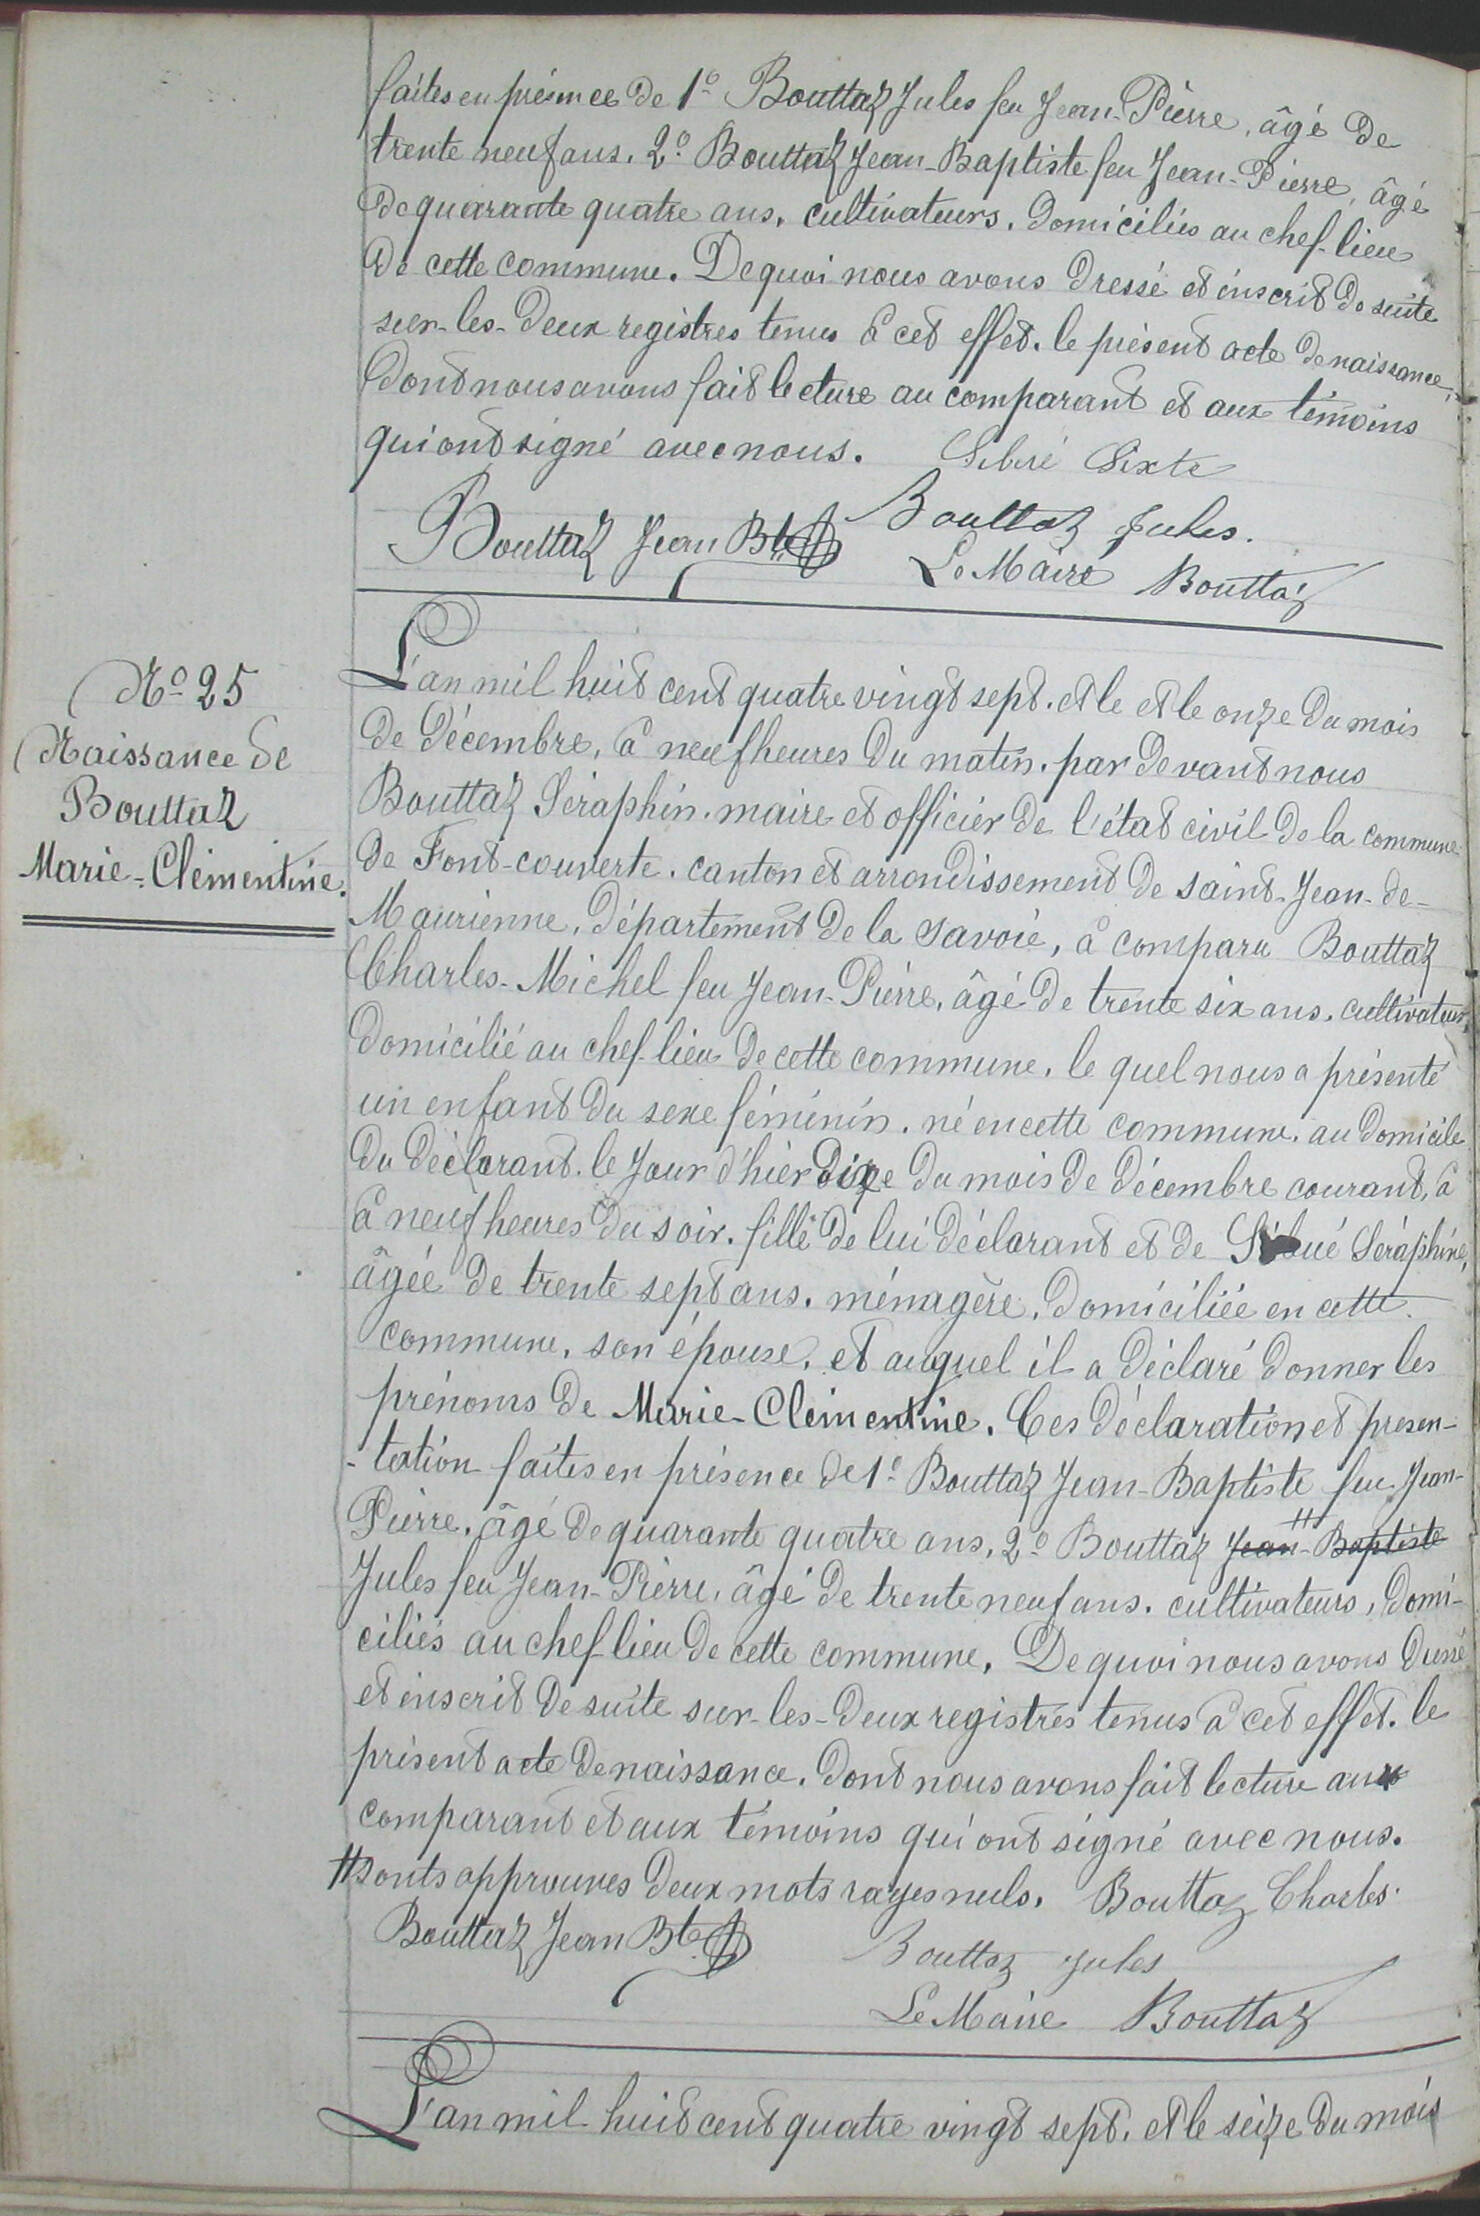 faites en présence de 1º Bouttaz Jules feu Jean-Pierre, âgé de
trente neuf ans. 2º Bouttaz Jean-Baptiste feu Jean-Pierre, âgé
de quarante quatre ans, cultivateurs, domiciliés au chef-lieu
de cette commune. De quoi nous avons dressé et inscrit de suite
sur-les-deux registres tenus à cet effet. le présent acte de naissance,
dont nous avons fait lecture au comparant et aux témoins
qui ont signé avec nous. Sixte
Bouttaz Jules.
Bouttaz Jean Bte
Le Maire Bouttaz
Nº 25
Naissance de
Bouttaz
Marie-Clémentine.
L'an mil huit cent quatre vingt sept. et le et le onze du mois
de Décembre, à neuf heures du matin. par devant nous
Bouttaz Séraphin. maire et officier de l'état civil de la commune
de Font-couverte. canton et arrondissement de saint-Jean-de-
Maurienne, département de la savoie, à comparu Bouttaz
Charles-Michel feu Jean-Pierre, âgé de trente six ans, cultivateur,
domicilié au chef-lieu de cette commune, le quel nous a présenté
un enfant du sexe féminin. né en cette commune. au domicile
du déclarant. le jour d'hier dixe du mois de décembre courant, à
à neuf heures du soir. fille de lui déclarant et de Séraphine,
âgée de trente sept ans. ménagère, domiciliée en cette
commune, son épouse, et auquel il a déclaré donner les
prénoms de Marie-Clémentine. Ces déclaration et présen-
-tation faites en présence de 1º Bouttaz Jean-Baptiste feu Jean-
Pierre. âgé de quarante quatre ans, 2º Bouttaz Jean-Baptiste
Jules feu Jean-Pierre, âgé de trente neuf ans. cultivateurs, domi-
ciliés au chef lieu de cette commune. De quoi nous avons dressé
et inscrit de suite sur-les-deux registres tenus à cet effet. le
présent acte de naissance. dont nous avons fait lecture au
comparant et aux témoins qui ont signé avec nous.
sonts approuves deux mots rayes nuls. Bouttaz Charles.
Bouttaz Jean Bte
Bouttaz Jules
Le Maire Bouttaz
L'an mil huit cent quatre vingt sept. et le seize du mois